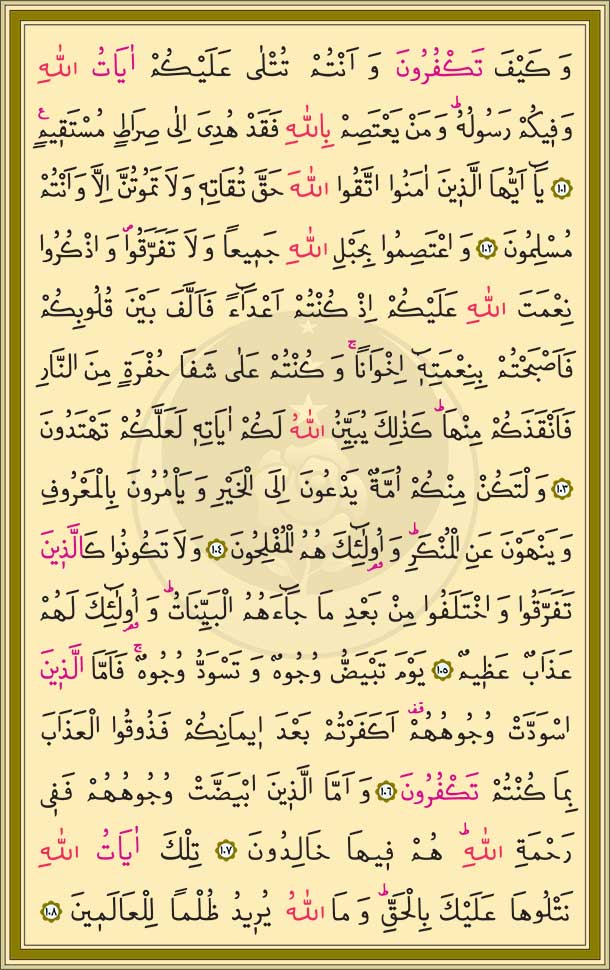 وَ كَيْفَ تَكْفُرُونَ وَ اَنْتُمْ تُتْلٰى عَلَيْكُمْ اٰيَاتُ اللّٰهِ
وَ ف۪يكُمْ رَسُولُهُ ۜ وَ مَنْ يَعْتَصِمْ بِاللّٰهِ فَقَدْ هُدِىَ اِلٰى صِرَاطٍ مُسْتَق۪يمٍ ع
﴿١٠١﴾ يَٓا اَيُّهَا الَّذ۪ينَ اٰمَنُوا اتَّقُوا اللّٰهَ حَقَّ تُقَاتِه۪ وَلَا تَمُوتُنَّ اِلَّا وَ اَنْتُمْ
مُسْلِمُونَ ﴿١٠٢﴾ وَ اعْتَصِمُوا بِحَبْلِ اللّٰهِ جَم۪يعاً وَ لَا تَفَرَّقُوا ۖ وَ اذْكُرُوا
نِعْمَتَ اللّٰهِ عَلَيْكُمْ اِذْ كُنْتُمْ اَعْدَٓاءً فَاَلَّفَ بَيْنَ قُلُوبِكُمْ
فَاَصْبَحْتُمْ بِنِعْمَتِه۪ٓ اِخْوَاناً ۚ وَ كُنْتُمْ عَلٰى شَفَا حُفْرَةٍ مِنَ النَّارِ
فَاَنْقَذَكُمْ مِنْهَا ۜ كَذٰلِكَ يُبَيِّنُ اللّٰهُ لَكُمْ اٰيَاتِه۪ لَعَلَّكُمْ تَهْتَدُونَ
﴿١٠٣﴾ وَ لْتَكُنْ مِنْكُمْ اُمَّةٌ يَدْعُونَ اِلَى الْخَيْرِ وَ يَاْمُرُونَ بِالْمَعْرُوفِ
وَ يَنْهَوْنَ عَنِ الْمُنْكَرِ ۜ وَ اُولٰٓئِكَ هُمُ الْمُفْلِحُونَ ﴿١٠٤﴾ وَلَا تَكُونُوا كَالَّذ۪ينَ
تَفَرَّقُوا وَ اخْتَلَفُوا مِنْ بَعْدِ مَا جَٓاءَهُمُ الْبَيِّنَاتُ ۜ وَ اُولٰٓئِكَ لَهُمْ
عَذَابٌ عَظ۪يمٌ ﴿١٠٥﴾ يَوْمَ تَبْيَضُّ وُجُوهٌ وَ تَسْوَدُّ وُجُوهٌ ۚ فَاَمَّا الَّذ۪ينَ
اسْوَدَّتْ وُجُوهُهُمْ قف اَكَفَرْتُمْ بَعْدَ ا۪يمَانِكُمْ فَذُوقُوا الْعَذَابَ
بِمَا كُنْتُمْ تَكْفُرُونَ ﴿١٠٦﴾ وَ اَمَّا الَّذ۪ينَ ابْيَضَّتْ وُجُوهُهُمْ فَف۪ى
رَحْمَةِ اللّٰهِ ۜ هُمْ ف۪يهَا خَالِدُونَ ﴿١٠٧﴾ تِلْكَ اٰيَاتُ اللّٰهِ
نَتْلُوهَا عَلَيْكَ بِالْحَقِّ ۜ وَ مَا اللّٰهُ يُر۪يدُ ظُلْمًا لِلْعَالَم۪ينَ ﴿١٠٨﴾